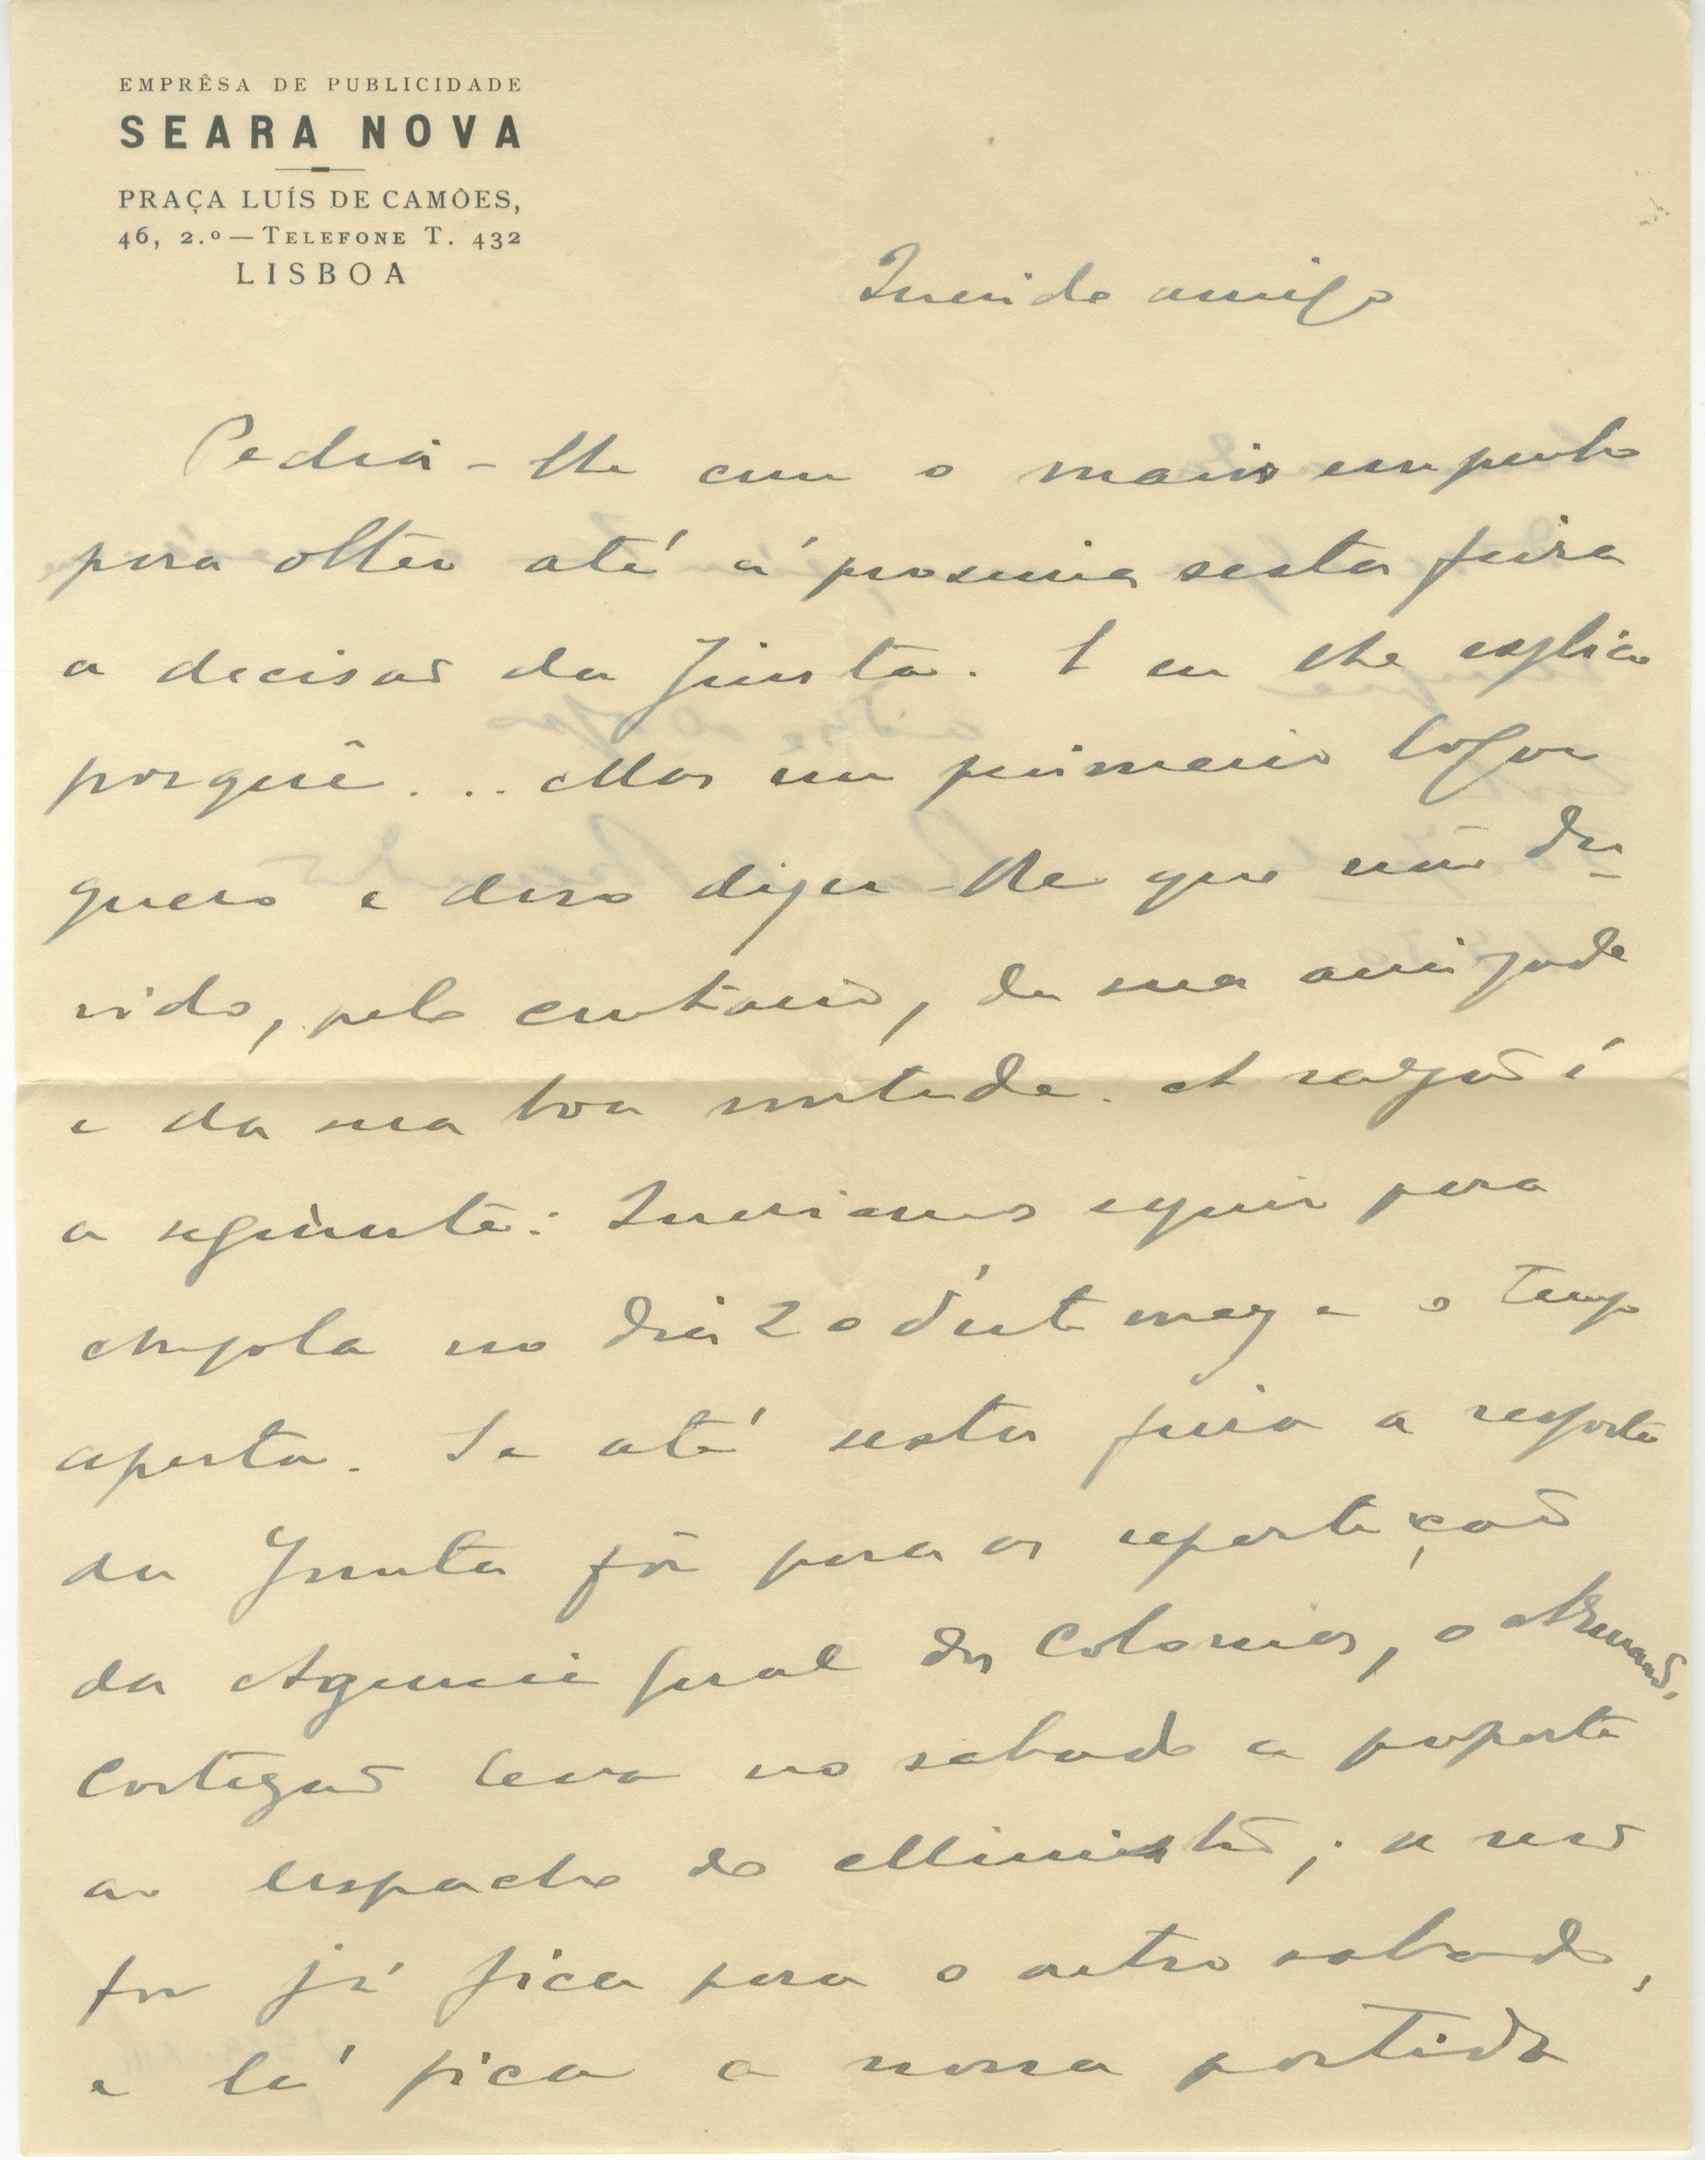 EMPRÊSA DE PUBLICIDADE
SEARA NOVA
PRAÇA LUÍS DE CAMÕES,
46, 2.º — TELEFONE T. 432
LISBOA
Querido amigo
Pedia-lhe com o maior empenho
para obter até á proxima sexta feira
a decisão da Junta. E eu lhe explico
porquê... Mas em primeiro logar
quero e devo dizer-lhe que não du-
vido, pelo contrario, da sua amizade
e da sua boa vontade. A razão é
a seguinte: Queriamos seguir para
Angola no dia 20 d'este mez e o tempo
aperta. Se até sexta feira a resposta
da Junta fôr para as repartição
da Agencia Geral das Colonias, o Armando
Cortezão leva no sabado a proposta
ao despacho do Ministro; se não
for já fica para o outro sabado,
e lá fica a nossa partida